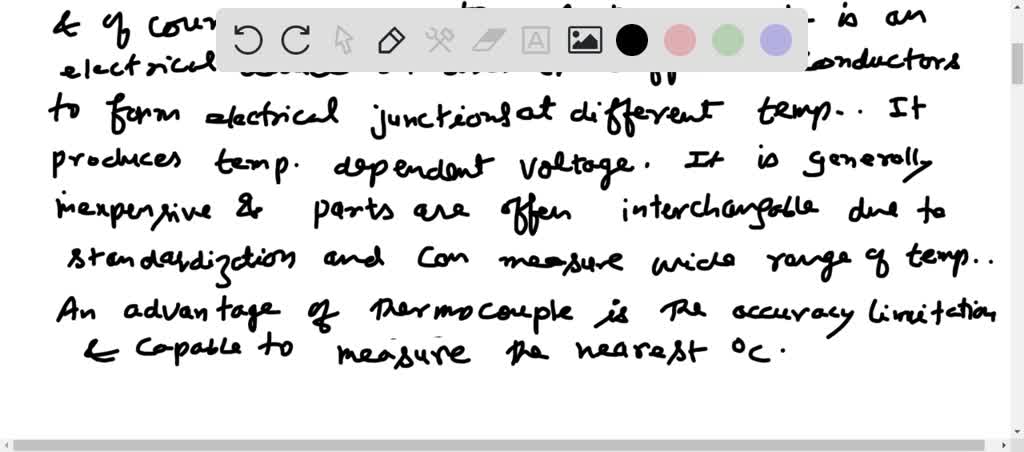 & of cour is an
electrical conductors
to form electrical junctions at different temp.. It
produces temp. dependent voltage. It is generally
inexpensive & parts are often interchangable due to
standardization and can measure wide range of temp..
An advantage of thermocouple is the accuracy limitation
& capable to measure the nearest °C.